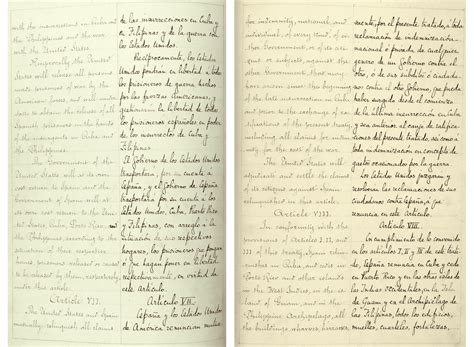 with the insurrections in Cuba and
the Philippines and the war
with the United States.
Reciprocally the United
States will release all persons
made prisoners of war by the
American forces, and will under-
take to obtain the release of all
Spanish prisoners in the hands
of the insurgents in Cuba and
the Philippines.
The Government of the
United States will at its own
cost return to Spain and the
Government of Spain will at
its own cost return to the
United States, Cuba, Porto Rico, and
the Philippines, according to the
situation of their respective
homes, prisoners released or caused
to be released by them, respectively,
under this article.
Article VII.
The United States and Spain
mutually relinquish all claims
de las insurrecciones en Cuba y
en Filipinas y de la guerra con
los Estados Unidos.
Recíprocamente, los Estados
Unidos pondrán en libertad a todos
los prisioneros de guerra hechos
por las fuerzas Americanas, y
gestionarán la libertad de todos
los prisioneros españoles en poder
de los insurrectos de Cuba y
Filipinas.
El Gobierno de los Estados Unidos
trasportará, por su cuenta á
España, y el Gobierno de España
trasportará por su cuenta á los
Estados Unidos, Cuba, Puerto Rico
y Filipinas, con arreglo á la
situación de sus respectivos
hogares, los prisioneros que pongan
ó que hagan poner en libertad
respectivamente, en virtud de
este artículo.
Artículo VII.
España y los Estados Unidos
de América renuncian mutua-
for indemnity, national and
individual, of every kind, of
either Government, or of its
citizens or subjects, against the
other Government, that may
have arisen since the beginning
of the late insurrection in Cuba
and prior to the exchange of
ratifications of the present treaty,
including all claims for indem-
nity for the cost of the war.
The United States will
adjudicate and settle the claims
of its citizens against Spain
relinquished in this article.
Article VIII.
In conformity with the
provisions of Articles I, II, and
III of this treaty, Spain
relinquishes in Cuba, and cedes
in Porto Rico and other islands
in the West Indies, in the island
of Guam, and in the
Philippine Archipelago, all
the buildings, wharves, barracks,
mente, por el presente tratado, á toda
reclamación de indemnización
nacional ó privada de cualquier
género de un Gobierno contra el
otro, ó de sus súbditos ó ciudada-
nos contra el otro Gobierno, que pueda
haber surgido desde el comienzo
de la última insurrección en Cuba
y sea anterior al canje de ratifica-
ciones del presente tratado, así como á
toda indemnización en concepto de
gastos ocasionados por la guerra.
Los Estados Unidos juzgarán y
resolverán las reclamaciones de sus
ciudadanos contra España, á que
renuncia en este artículo.
Artículo VIII.
En cumplimiento de lo convenido
en los artículos I, II y III de este tratado,
España renuncia en Cuba y cede
en Puerto Rico y en las otras islas
de las Indias Occidentales, en la Isla
de Guam y en el Archipiélago de
las Filipinas, todos los edificios,
muelles, cuarteles, fortalezas,